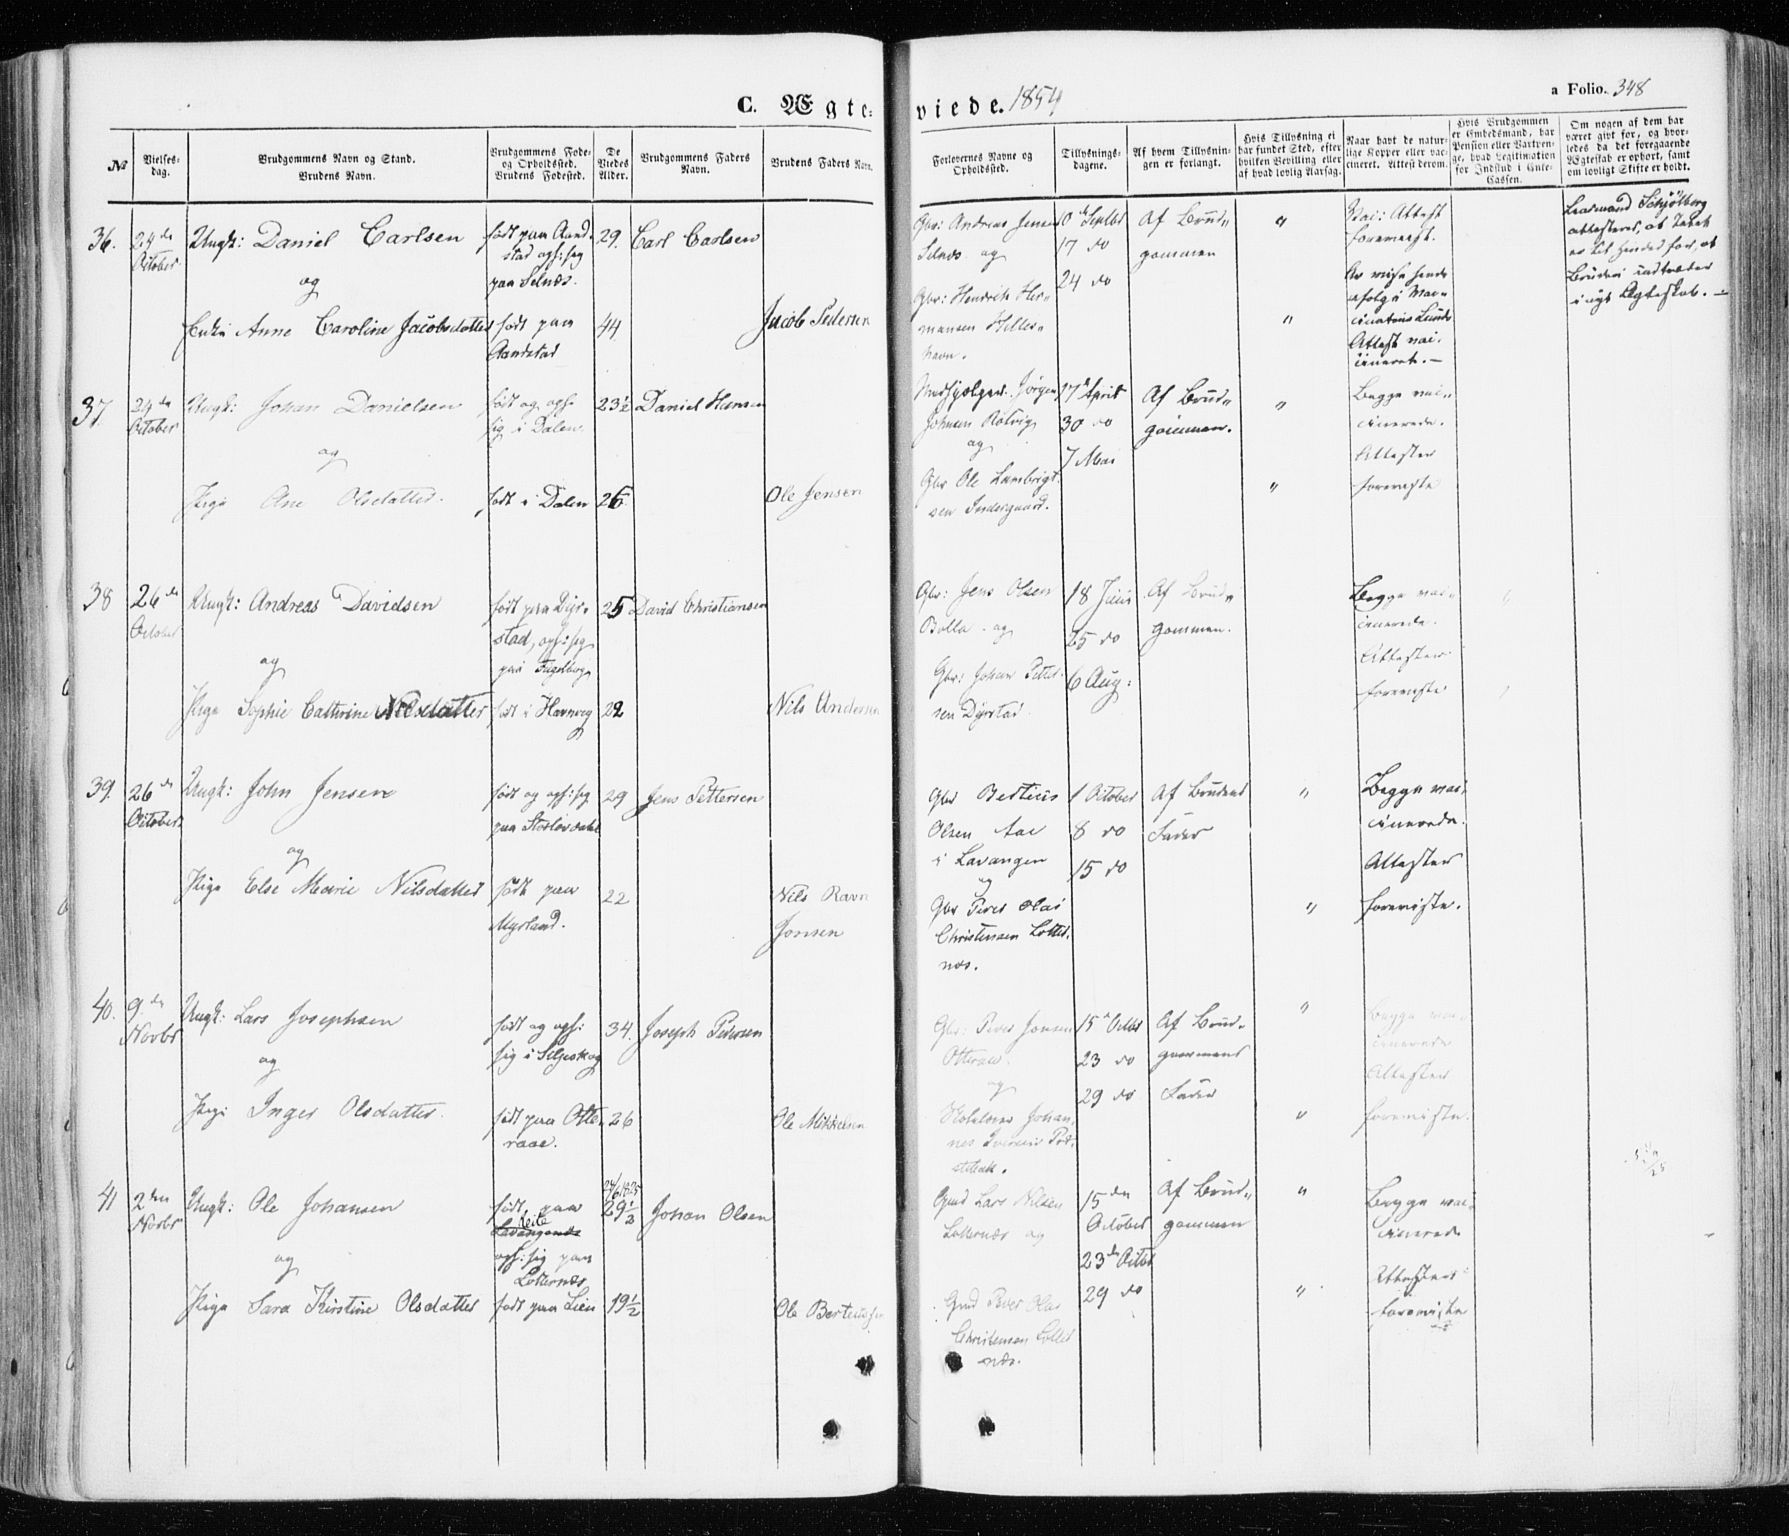 C. Ægte-
viede. 1854
a Folio. 348
No
Vielses-
dag.
Brudgommens Navn og Stand.
Brudens Navn.
Brudgommens Føde-
og Opholdssted.
Brudens Fødested.
De
Viedes
Alder.
Brudgommens Faders
Navn.
Brudens Faders Navn.
Forlovernes Navne og
Opholdssted.
Tillysnings-
dagene.
Af hvem Tillysnin-
gen er forlangt.
Hvis Tillysning ei
har fundet Sted, efter
hvilken Bevilling eller
af hvad lovlig Aarsag.
Naar havt de natur-
lige Kopper eller vac-
cineret. Attest derom.
Hvis Brudgommen
er Embedsmand, har
Pension eller Vartpen-
ge, hvad Legitimation
for Indskud i Enke-
Cassen.
Om nogen af dem har
været gift før, og hvor-
ledes da det foregaaende
Ægteskab er ophørt, samt
om lovligt Skifte er holdt.
36.
24de
October
Ungk: Daniel Carlsen
og
Enke Anne Caroline Jacobsdatter
født paa Aand-
stad oph: sig
paa Selnæs.
født paa
Aandstad
29.
44
Carl Carlsen
Jacob Pedersen
Gbr: Andreas Jensen
Selnæs og
Gbr: Henrik Her-
mansen Melles-
havn.
10de Septbr
17 do
24 do
Af Brud-
gommen
"
"
Vac: Attest
forevist.
Attest vac-
cineret. –
Lensmand Schjølberg
attesterer, at Intet
er til Hinder for, at
Bruden indtræder
i nyt Ægteskab. –
37.
24de
October
Ungk: Johan Danielsen
og
Pige Ane Olsdatter.
født og oph:
sig i Dalen
født i Dalen
23½
Daniel Hansen
Ole Jensen
Jørgen
Johnsen
og
Gbr Ole Lambrigt-
sen Indergaard.
17de April
30 do
7 Mai
Af Brud-
gommen.
"
"
Begge vac-
cinerede.
Attester
foreviste
38
26de
October
Ungk: Andreas Davidsen
og
Pige Sophie Cathrine Nilsdatter
født paa Dyr-
stad, oph: sig
paa
født i Havnvig
25
22
David Christiansen
Nils Andersen
Gbr: Jens Olsen
Bolla og
Gbr: Johan Petter-
sen Dyrstad.
18 Juni
25 do
6 Aug:
Af Brud-
gommen.
Begge vac-
cinerede.
Attester
foreviste
39.
26de
October
Ungk: John Jensen
og
Pige Else Marie Nilsdatter
født og oph: sig
paa
født paa
Myrland.
29
22
Jens Pettersen
Nils Ravn
Jonsen
Gbr Bertius
Olsen Aae
i Lavangen
og
Gbr Peder Olai
Christensen Lotter-
næs.
1 October
8 do
15 do
Af Brudens
Fader
"
"
Begge vac-
cinerede.
Attester
foreviste.
40.
9de
Novbr
Ungk: Lars Josephsen
og
Pige Inger Olsdatter.
født og oph:
sig i Seljeskog
født paa Otte-
raae.
34.
26
Joseph Pedersen
Ole Mikkelsen
Gbr: Peder Jonsen
Otteraae.
og
Johan-
nes
15de Octbr
23 do
29 do
Af Brud-
gommens
Fader
"
"
Begge vac-
cinerede
Attester
foreviste.
41
2den
Novbr
Ungk: Ole Johansen
og
Pige Sara Kirstine Olsdatter
født paa
oph: sig paa
Lotternæs
født paa Lien
24/6 1825
29½
19½
Johan Olsen
Ole Berteussen
Gmd Lars Nilsen
Lotternæs og
Gmd Peder Olai
Christensen Lotter
næs.
15de
October
23de Octbr
29 do
Af Brud-
gommen
"
"
Begge vac-
cinerede
Attester
foreviste